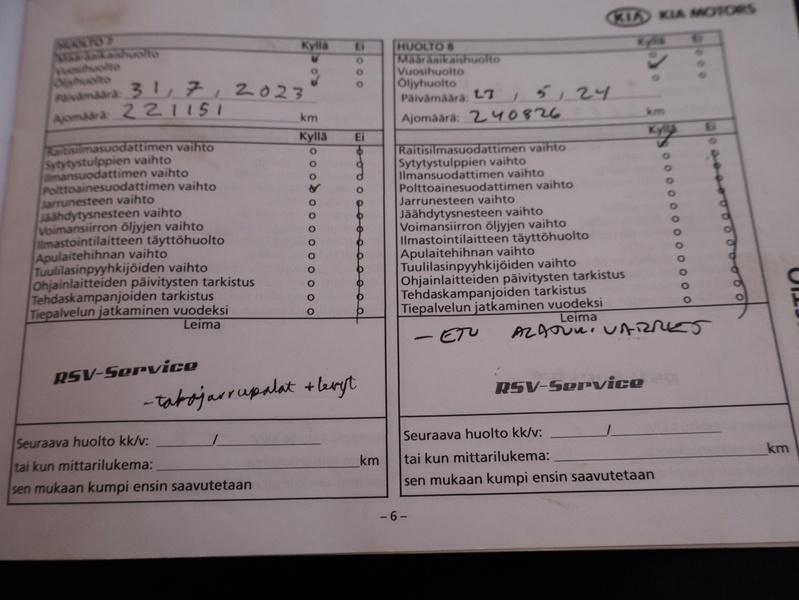 KIA KIA MOTORS
HUOLTO 7 Kyllä Ei
Määräaikaishuolto
Vuosihuolto
Öljyhuolto
Päivämäärä: 31, 7, 2023
Ajomäärä: 221151 km
Kyllä Ei
Raitisilmasuodattimen vaihto
Sytytystulppien vaihto
Ilmansuodattimen vaihto
Polttoainesuodattimen vaihto
Jarrunesteen vaihto
Jäähdytysnesteen vaihto
Voimansiirron öljyjen vaihto
Ilmastointilaitteen täyttöhuolto
Apulaitehihnan vaihto
Tuulilasinpyyhkijöiden vaihto
Ohjainlaitteiden päivitysten tarkistus
Tehdaskampanjoiden tarkistus
Tiepalvelun jatkaminen vuodeksi
Leima
RSV-Service
-takajarrupalat + levyt
Seuraava huolto kk/v: /
tai kun mittarilukema: km
sen mukaan kumpi ensin saavutetaan
HUOLTO 8 Kyllä Ei
Määräaikaishuolto
Vuosihuolto
Öljyhuolto
Päivämäärä: 27, 5, 24
Ajomäärä: 240826 km
Kyllä Ei
Raitisilmasuodattimen vaihto
Sytytystulppien vaihto
Ilmansuodattimen vaihto
Polttoainesuodattimen vaihto
Jarrunesteen vaihto
Jäähdytysnesteen vaihto
Voimansiirron öljyjen vaihto
Ilmastointilaitteen täyttöhuolto
Apulaitehihnan vaihto
Tuulilasinpyyhkijöiden vaihto
Ohjainlaitteiden päivitysten tarkistus
Tehdaskampanjoiden tarkistus
Tiepalvelun jatkaminen vuodeksi
Leima
- ETU
RSV-Service
Seuraava huolto kk/v: /
tai kun mittarilukema: km
sen mukaan kumpi ensin saavutetaan
– 6 –